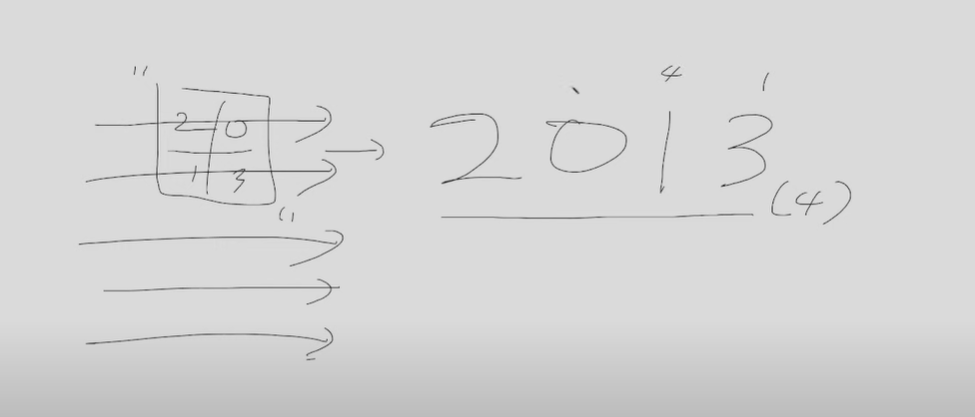 2 0
1 3
4 1
2 0 1 3 (4)